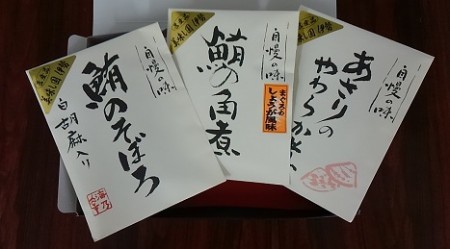 自慢の味
鮪のそぼろ
白胡麻入り
自慢の味
鮪の角煮
まぐろの
しょうが風味
自慢の味
あさりの
やわらか煮